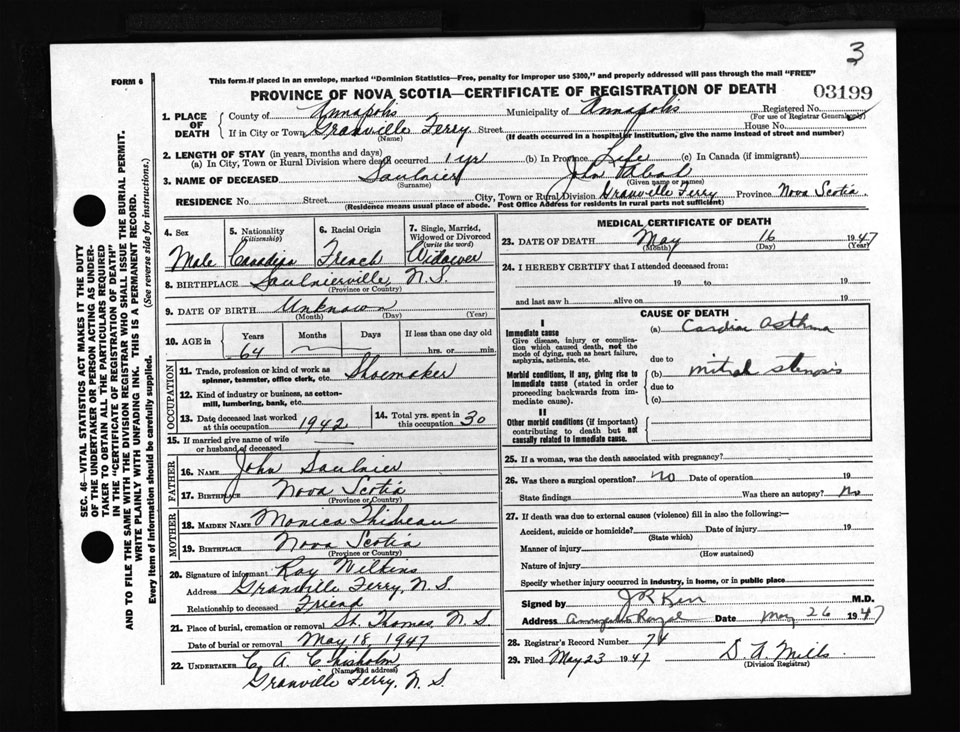 3
FORM 6
This form if placed in an envelope, marked "Dominion Statistics—Free, penalty for improper use $300," and properly addressed will pass through the mail "FREE"
PROVINCE OF NOVA SCOTIA—CERTIFICATE OF REGISTRATION OF DEATH
03199
1. PLACE OF DEATH
County of Annapolis Municipality of Annapolis Registered No.
(For use of Registrar General only)
If in City or Town Granville Ferry Street House No.
(Name) (If death occurred in a hospital or institution, give the name instead of street and number)
2. LENGTH OF STAY (in years, months and days)
(a) In City, Town or Rural Division where death occurred 1 yr (b) In Province Life (c) In Canada (if immigrant)
3. NAME OF DECEASED Saulnier John
(Surname) (Given name or names)
RESIDENCE No. Street City, Town or Rural Division Granville Ferry Province Nova Scotia
(Residence means usual place of abode. Post Office Address for residents in rural parts not sufficient)
SEC. 46—VITAL STATISTICS ACT MAKES IT THE DUTY
OF THE UNDERTAKER OR PERSON ACTING AS UNDER-
TAKER TO OBTAIN ALL THE PARTICULARS REQUIRED
IN THE "CERTIFICATE OF REGISTRATION OF DEATH"
AND TO FILE THE SAME WITH THE DIVISION REGISTRAR WHO SHALL ISSUE THE BURIAL PERMIT.
WRITE PLAINLY WITH UNFADING INK. THIS IS A PERMANENT RECORD.
Every item of information should be carefully supplied. (See reverse side for instructions.)
4. Sex 5. Nationality (Citizenship) 6. Racial Origin 7. Single, Married, Widowed or Divorced (write the word)
Male Canadian French Widower
8. BIRTHPLACE Saulnierville N.S.
(Province or Country)
9. DATE OF BIRTH Unknown
(Month) (Day) (Year)
10. AGE in Years Months Days If less than one day old
64 hrs. or min.
OCCUPATION
11. Trade, profession or kind of work as Shoemaker
spinner, teamster, office clerk, etc.
12. Kind of industry or business, as cotton-
mill, lumbering, bank, etc.
13. Date deceased last worked at this occupation 1942 14. Total yrs. spent in this occupation 30
15. If married give name of wife
or husband of deceased
FATHER
16. NAME John Saulnier
17. BIRTHPLACE Nova Scotia
(Province or Country)
MOTHER
18. MAIDEN NAME Monica Thibeau
19. BIRTHPLACE Nova Scotia
(Province or Country)
20. Signature of informant Roy Wilkins
Address Granville Ferry, N.S.
Relationship to deceased Friend
21. Place of burial, cremation or removal St. Thomas, N.S.
Date of burial or removal May 18, 1947
22. UNDERTAKER C. A. Chisholm,
(Name and Address)
Granville Ferry, N.S.
MEDICAL CERTIFICATE OF DEATH
23. DATE OF DEATH May 16 1947
(Month) (Day) (Year)
24. I HEREBY CERTIFY that I attended deceased from:
19 to 19
and last saw h alive on 19
CAUSE OF DEATH
I
Immediate cause (a) Cardiac Asthma
Give disease, injury or compli-
cation which caused death, not the
mode of dying, such as heart failure,
asphyxia, asthenia, etc. due to
Morbid conditions, if any, giving rise to (b) mitral stenosis
immediate cause (stated in order due to
proceeding backwards from im- (c)
mediate cause).
II
Other morbid conditions (if important)
contributing to death but not
causally related to immediate cause.
25. If a woman, was the death associated with pregnancy?
26. Was there a surgical operation? no Date of operation 19
State findings Was there an autopsy? no
27. If death was due to external causes (violence) fill in also the following:—
Accident, suicide or homicide? Date of injury 19
(State which)
Manner of injury
(How sustained)
Nature of injury
Specify whether injury occurred in industry, in home, or in public place
Signed by J R Kerr M.D.
Address Annapolis Royal Date May 26 1947
28. Registrar's Record Number 74
29. Filed May 23 1947 D. A. Mills
(Division Registrar)